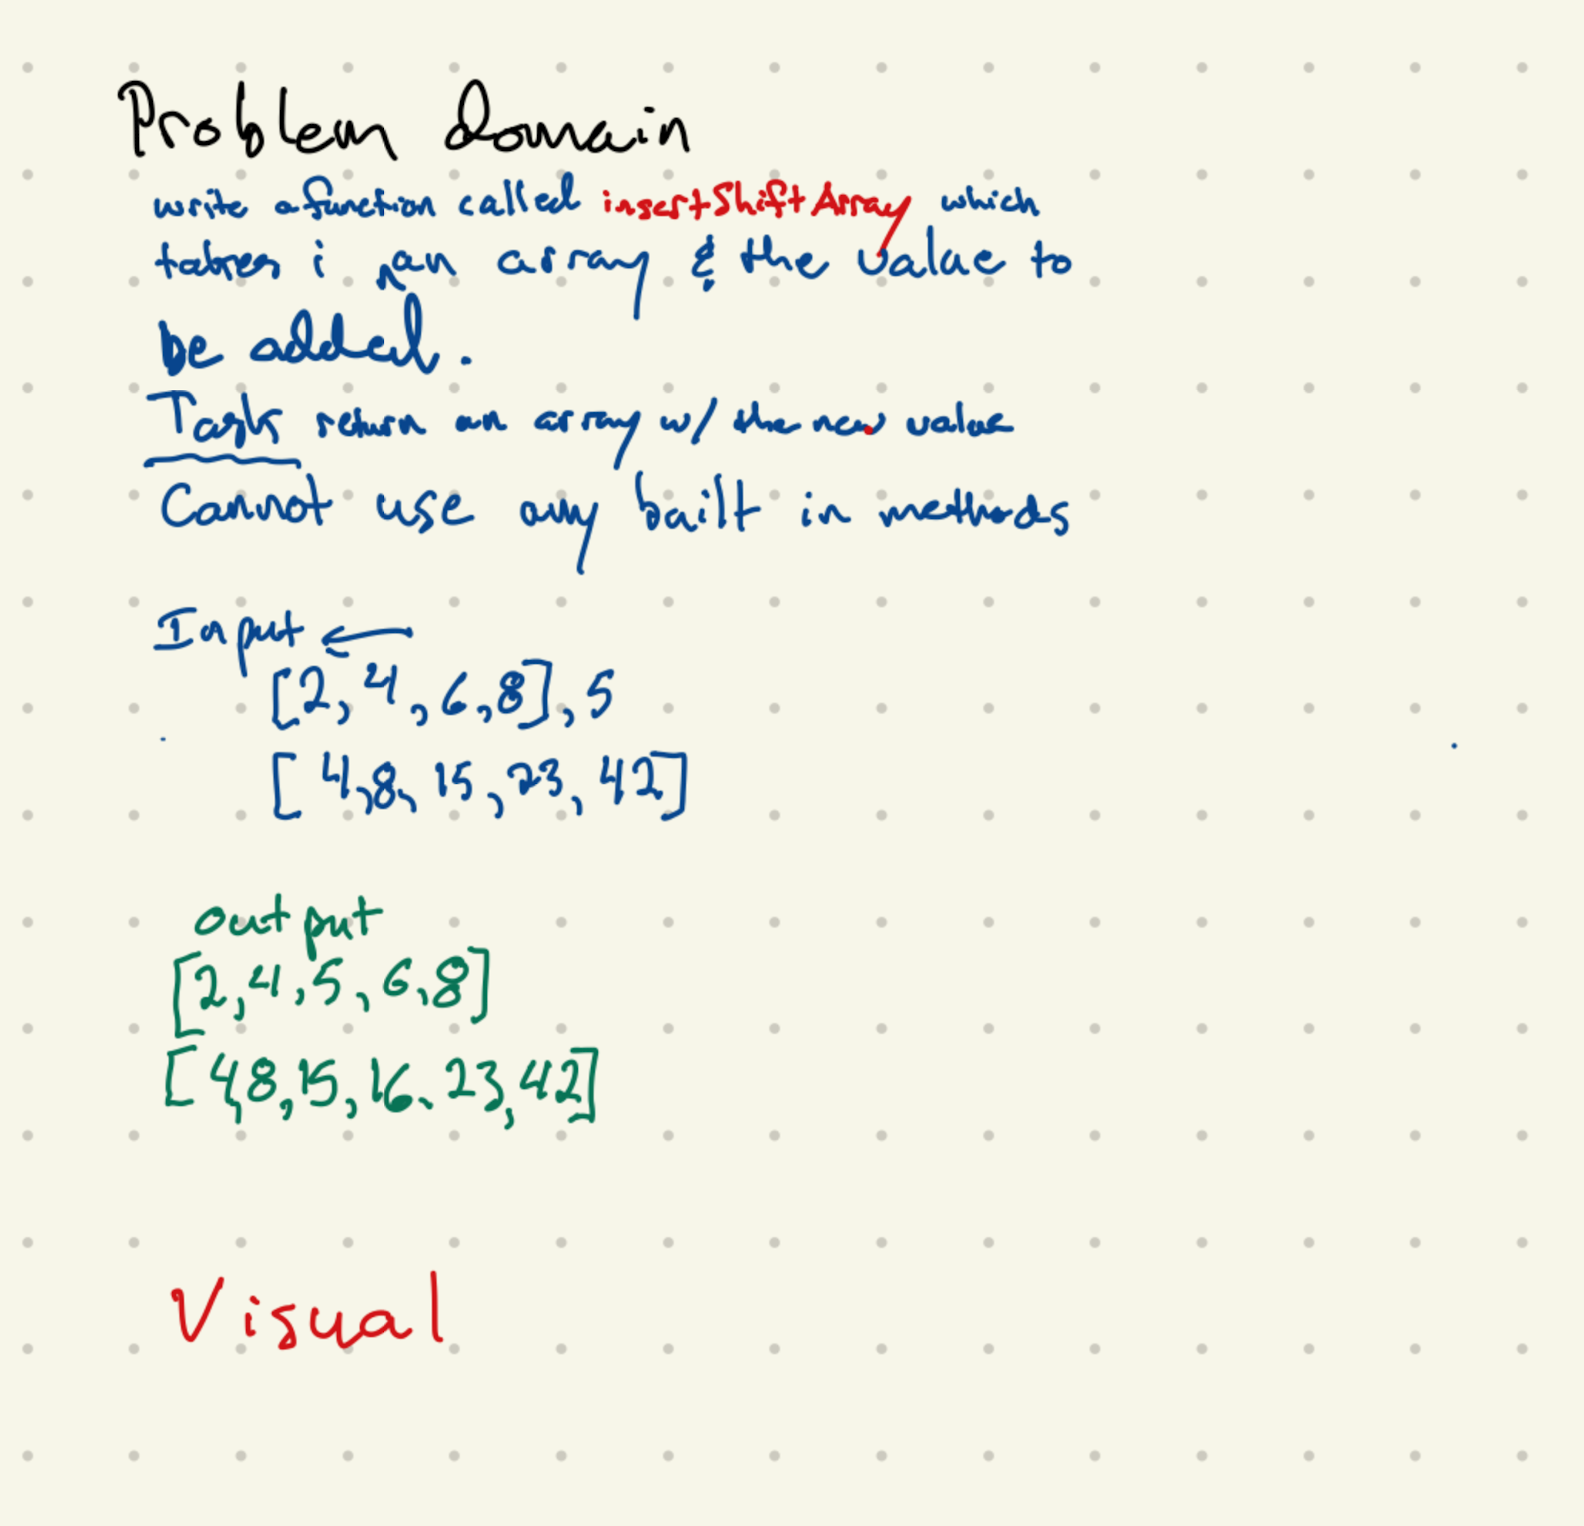 Problem domain
write a function called insertShiftArray which
takes i an array & the value to
be added.
Task return an array w/ the new value
Cannot use any built in methods
Input ←
[2, 4, 6, 8], 5
[4, 8, 15, 23, 42]
output
[2, 4, 5, 6, 8]
[4, 8, 15, 16, 23, 42]
Visual